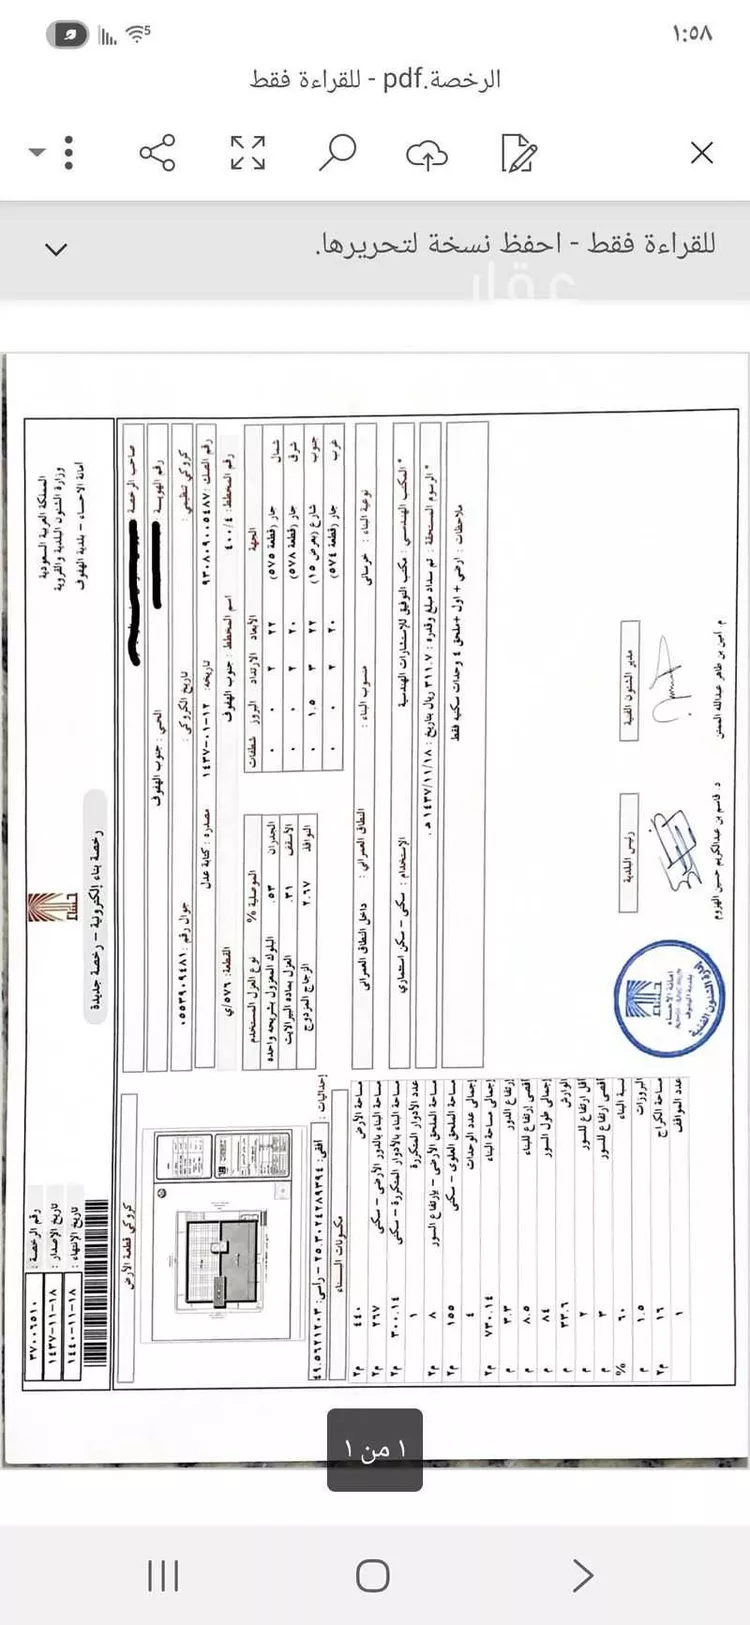 ١:٥٨
الرخصة.pdf - للقراءة فقط
للقراءة فقط - احفظ نسخة لتحريرها.
عقار
المملكة العربية السعودية
وزارة الشئون البلدية والقروية
أمانة الاحساء - بلدية الهفوف
رخصة بناء إلكترونية - رخصة جديدة
رقم الرخصة : ٣٧٠٠٦٥١٠
تاريخ الإصدار : ١٤٣٧-١١-١٨
تاريخ الإنتهاء : ١٤٤٠-١١-١٨
صاحب الرخصة
رقم الهوية
الحي : جنوب الهفوف
كروكي تنظيمي :
تاريخ الكروكي :
جوال رقم : ٠٥٥٣٩٠٩٤٨١
رقم الصك : ٩٣٠٨٠٩٠٠٥٤٨٧
تاريخه: ١٤٣٧-٠١-١٢
مصدره : كتابة عدل
رقم المخطط : ٤٠٠/٤
اسم المخطط : جنوب الهفوف
القطعة: ٥٧٦/ي
الجهة الأبعاد الارتداد البروز شطفات
شمال جار (قطعة ٥٧٥) ٢٢ ٢ ٠ ٠
شرق جار (قطعة ٥٧٨) ٢٠ ٢ ٠ ٠
جنوب شارع (بعرض ١٥) ٢٢ ٣ ١.٥ ٠
غرب جار (قطعة ٥٧٤) ٢٠ ٢ ٠
نوع العزل المستخدم الموصلية %
البلوك المعزول بشريحه واحده الجدران ٠.٥٣
العزل بماده البيرلايت الأسقف ٠.٣١
الزجاج المزدوج النوافذ ٢.٦٧
نوعية البناء : خرساني
منسوب البناء :
النطاق العمراني : داخل النطاق العمراني
* المكتب الهندسي : مكتب التوفيق للإستشارات الهندسية
الإستخدام : سكني - سكن استثماري
* الرسوم المستحقة : تم سداد مبلغ وقدره : ٣١١.٧ ريال بتاريخ : ١٤٣٧/١١/١٨ هـ .
ملاحظات : ارضي + اول +ملحق ٤ وحدات سكنيه فقط
كروكي قطعة الأرض
إحداثيات : أفقي: ٢٥.٣٠٢٤٢٨٩٣٩٤ - راسي: ٤٩.٥٦٢١٢٠٣
مكونات البناء
مساحة الأرض ٤٤٠ م٢
مساحة البناء بالدور الأرضي - سكني ٢٦٧ م٢
مساحة البناء بالأدوار المتكررة - سكني ٣٠٠.١٤ م٢
عدد الأدوار المتكررة ١
مساحة الملحق الأرضي - بإرتفاع السور ٨ م٢
مساحة الملحق العلوي - سكني ١٥٥ م٢
إجمالي عدد الوحدات ٤
إجمالي مساحة البناء ٧٣٠.١٤ م٢
إرتفاع الدور ٣.٣ م
أقصى إرتفاع للبناء ٨.٥ م
إجمالي طول السور ٨٤ م
الوارش ٣٣.٦ م
أقل ارتفاع للسور ٢ م
أقصى ارتفاع للسور ٣ م
نسبة البناء ٦٠ %
البروزات ١.٥ م
مساحة الكراج ١٦ م٢
عدد المواقف ١
مدير الشئون الفنية
م. أمين بن طاهر عبدالله الممتن
رئيس البلدية
د. قاسم بن عبدالكريم حسين الهروم
أمانة الاحساء
بلدية الهفوف
إدارة الشئون الفنية
١ من ١